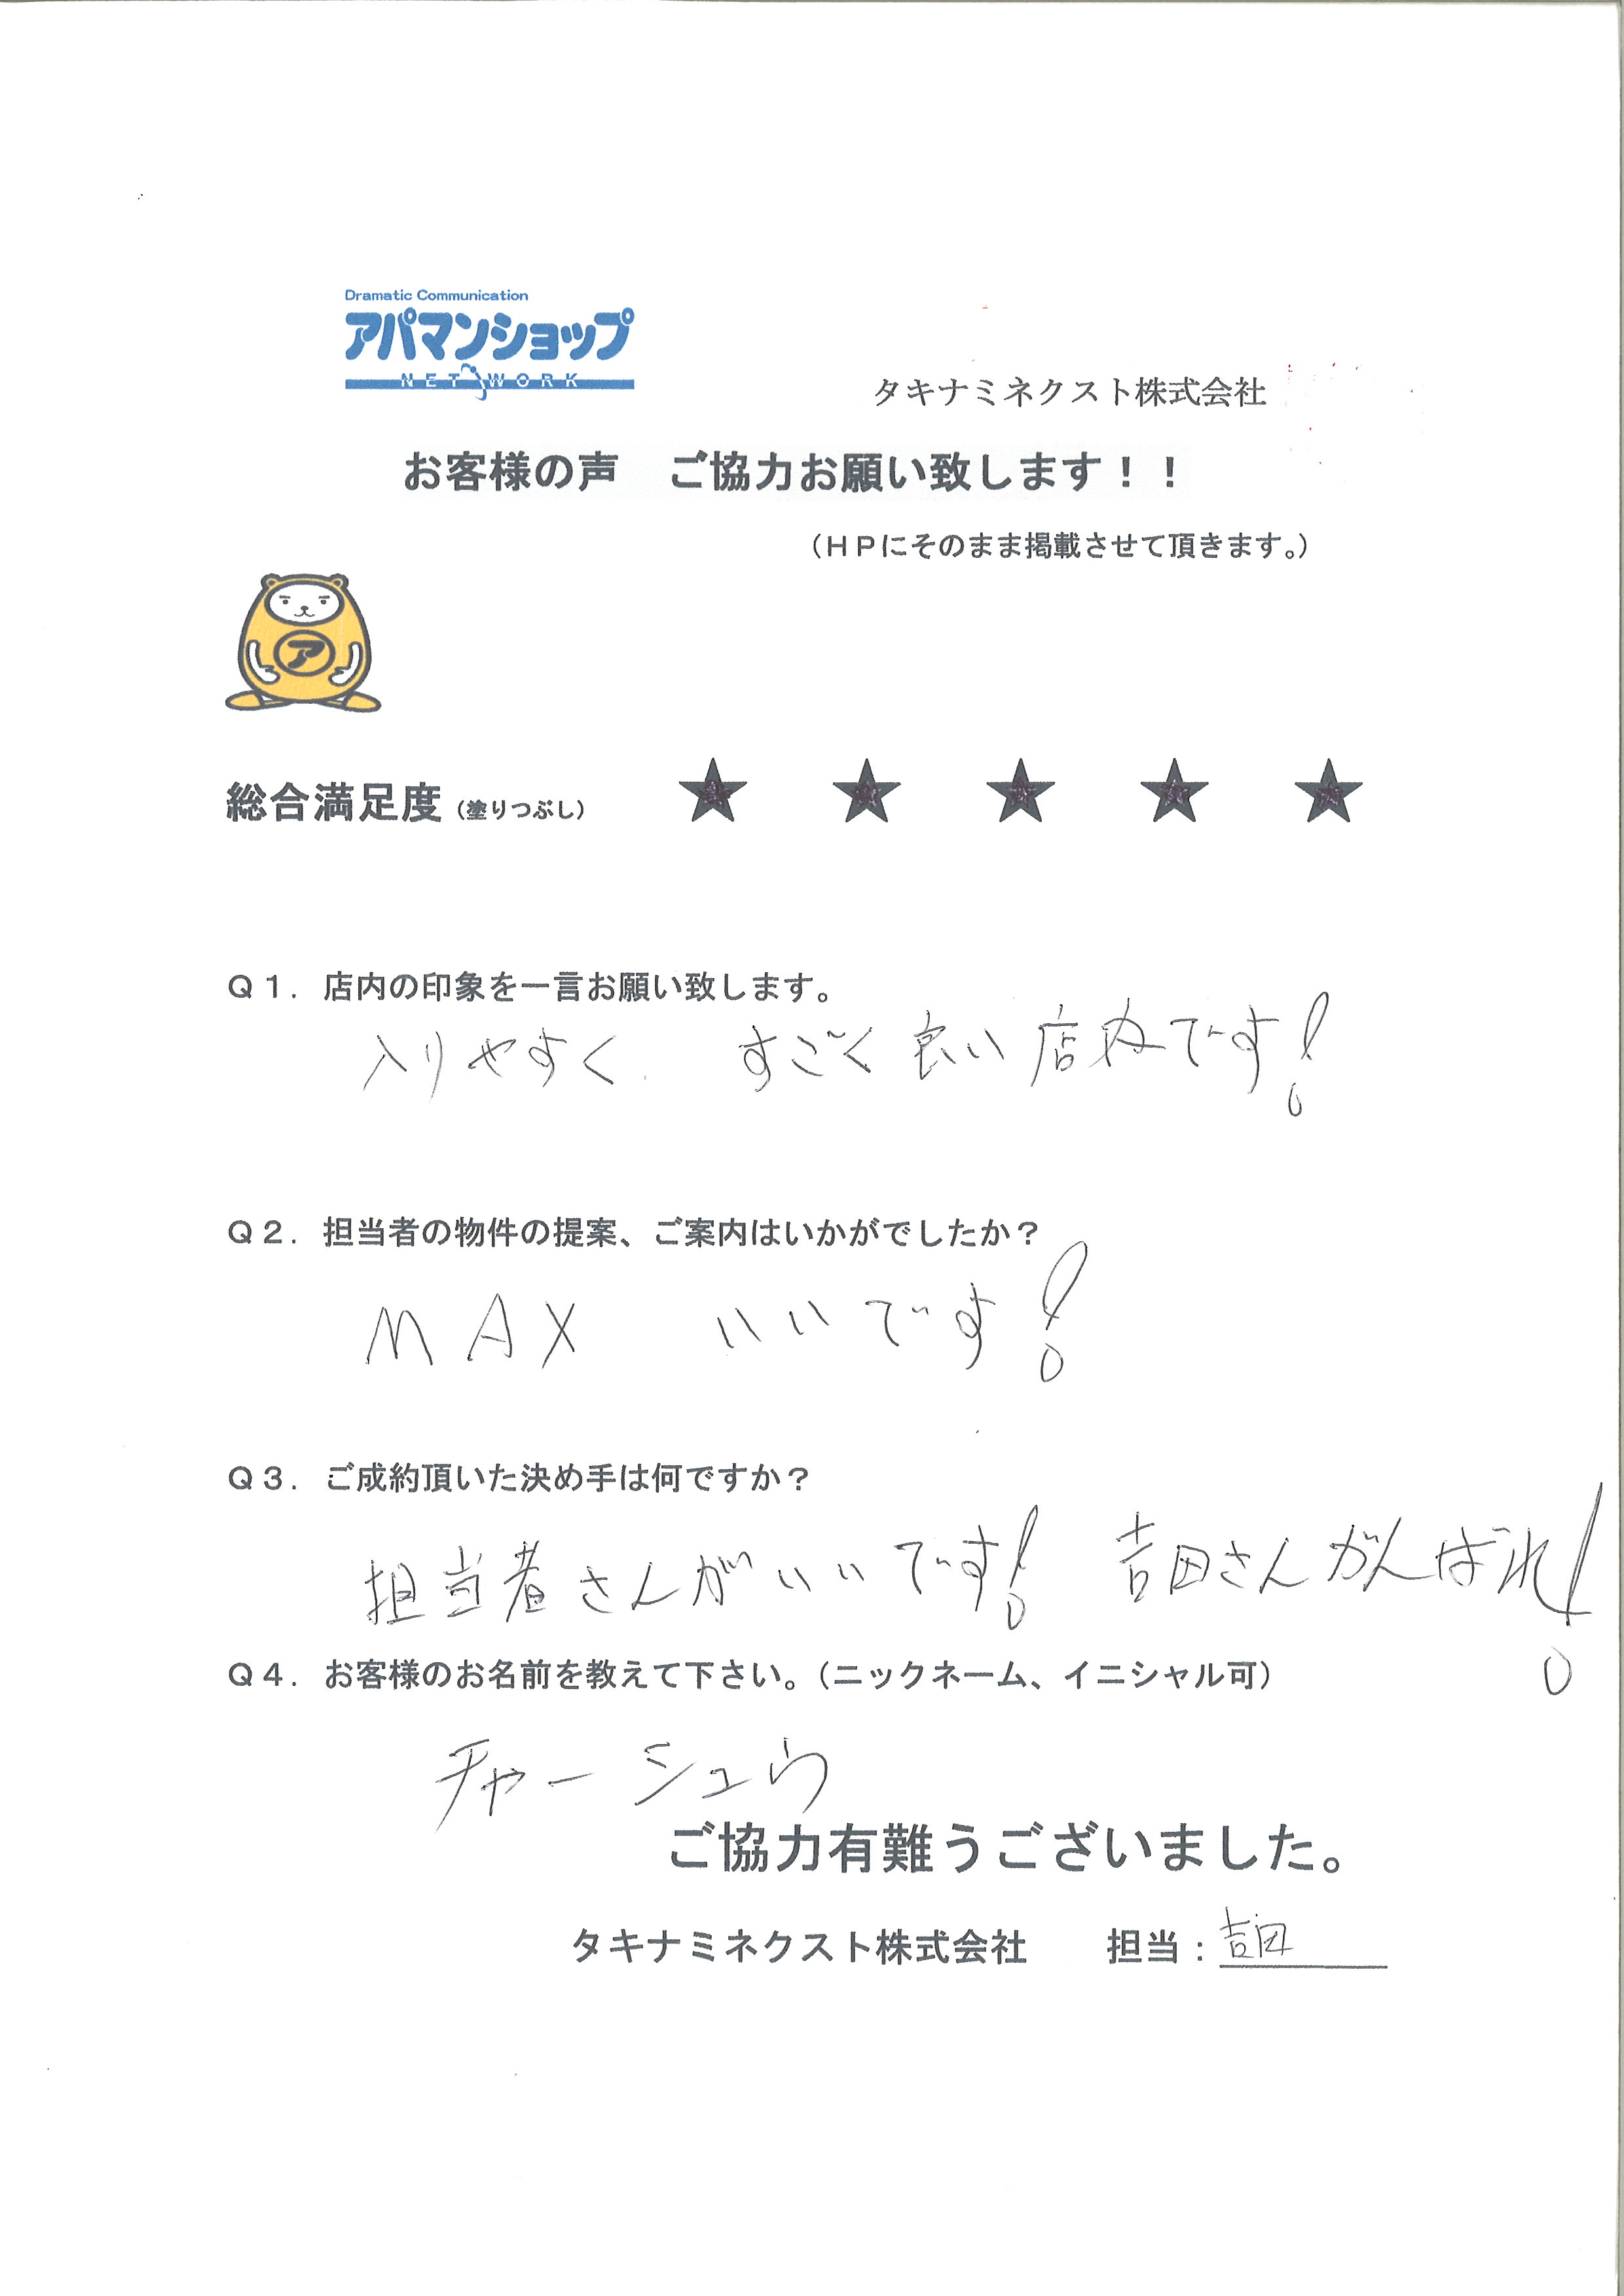 Dramatic Communication
アパマンショップ
NETWORK
タキナミネクスト株式会社
お客様の声　ご協力お願い致します！！
（ＨＰにそのまま掲載させて頂きます。）
ア
総合満足度（塗りつぶし）　★　★　★　★　★
Ｑ１．店内の印象を一言お願い致します。
入りやすく　すごく良い店内です！
Ｑ２．担当者の物件の提案、ご案内はいかがでしたか？
MAX　いいです！
Ｑ３．ご成約頂いた決め手は何ですか？
担当者さんがいいです！　吉田さんがんばれ！
Ｑ４．お客様のお名前を教えて下さい。（ニックネーム、イニシャル可）
チャーシュウ
ご協力有難うございました。
タキナミネクスト株式会社　担当：吉田